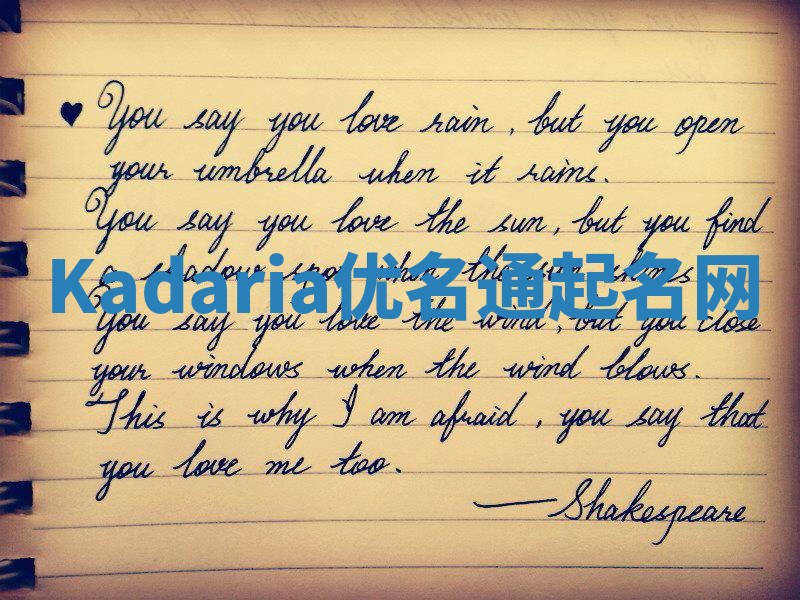 ♥ You say you love rain, but you open
your umbrella when it rains.
You say you love the sun, but you find
a shadow spot when the sun shines
Kadaria优名通起名网
You say you love the wind, but you close
your windows when the wind blows.
This is why I am afraid, you say that
you love me too.
—Shakespeare